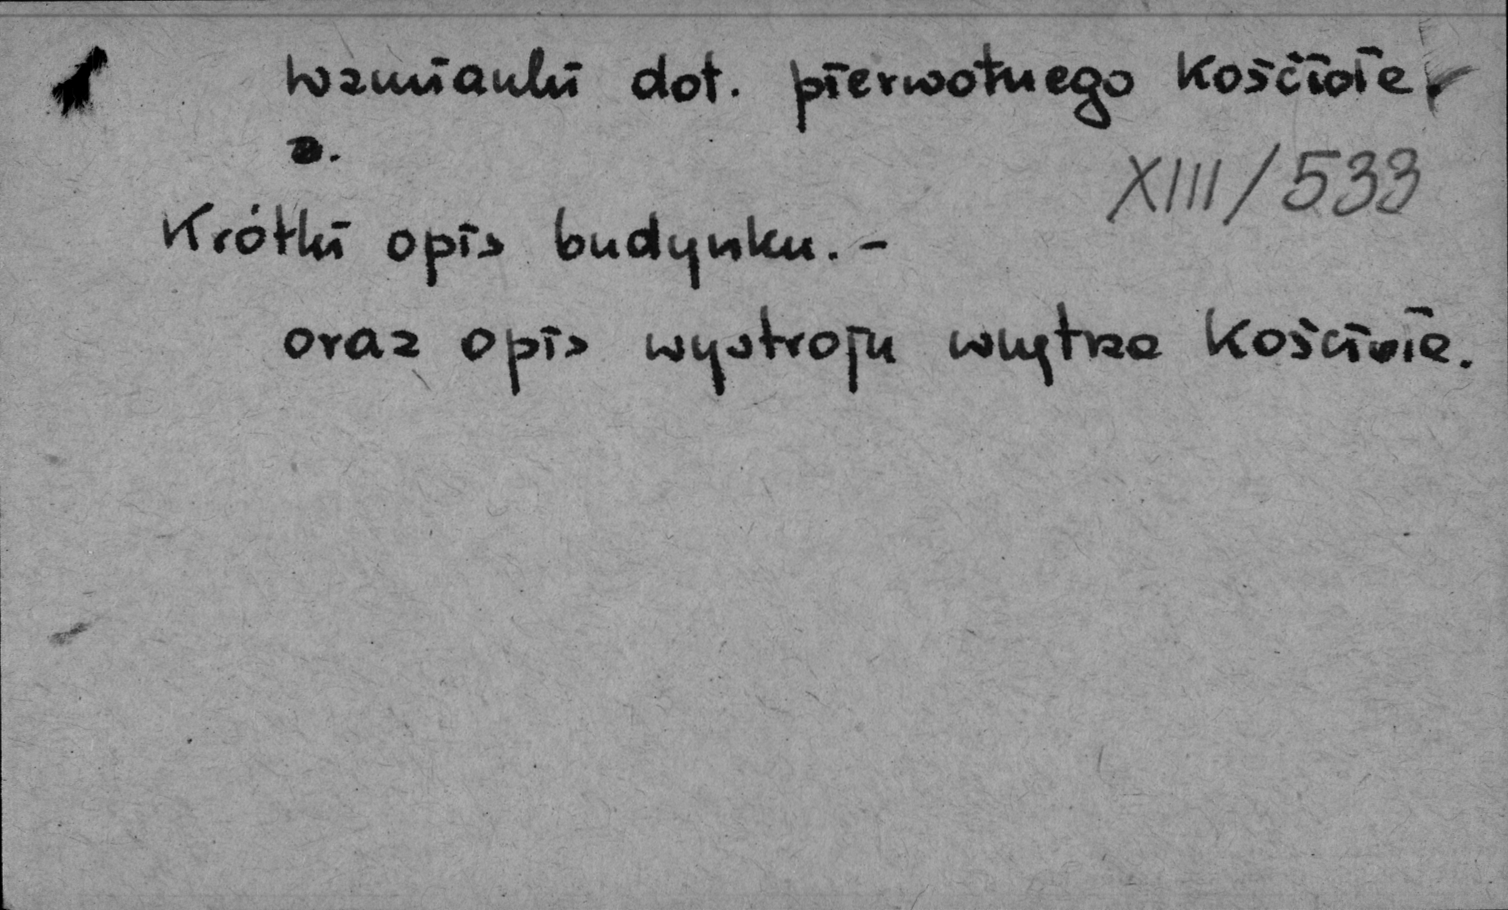 Wzmianki dot. pierwotnego Kościoła.
a.
XIII/533
Krótki opis budynku. –
oraz opis wystroju wnętrza Kościoła.